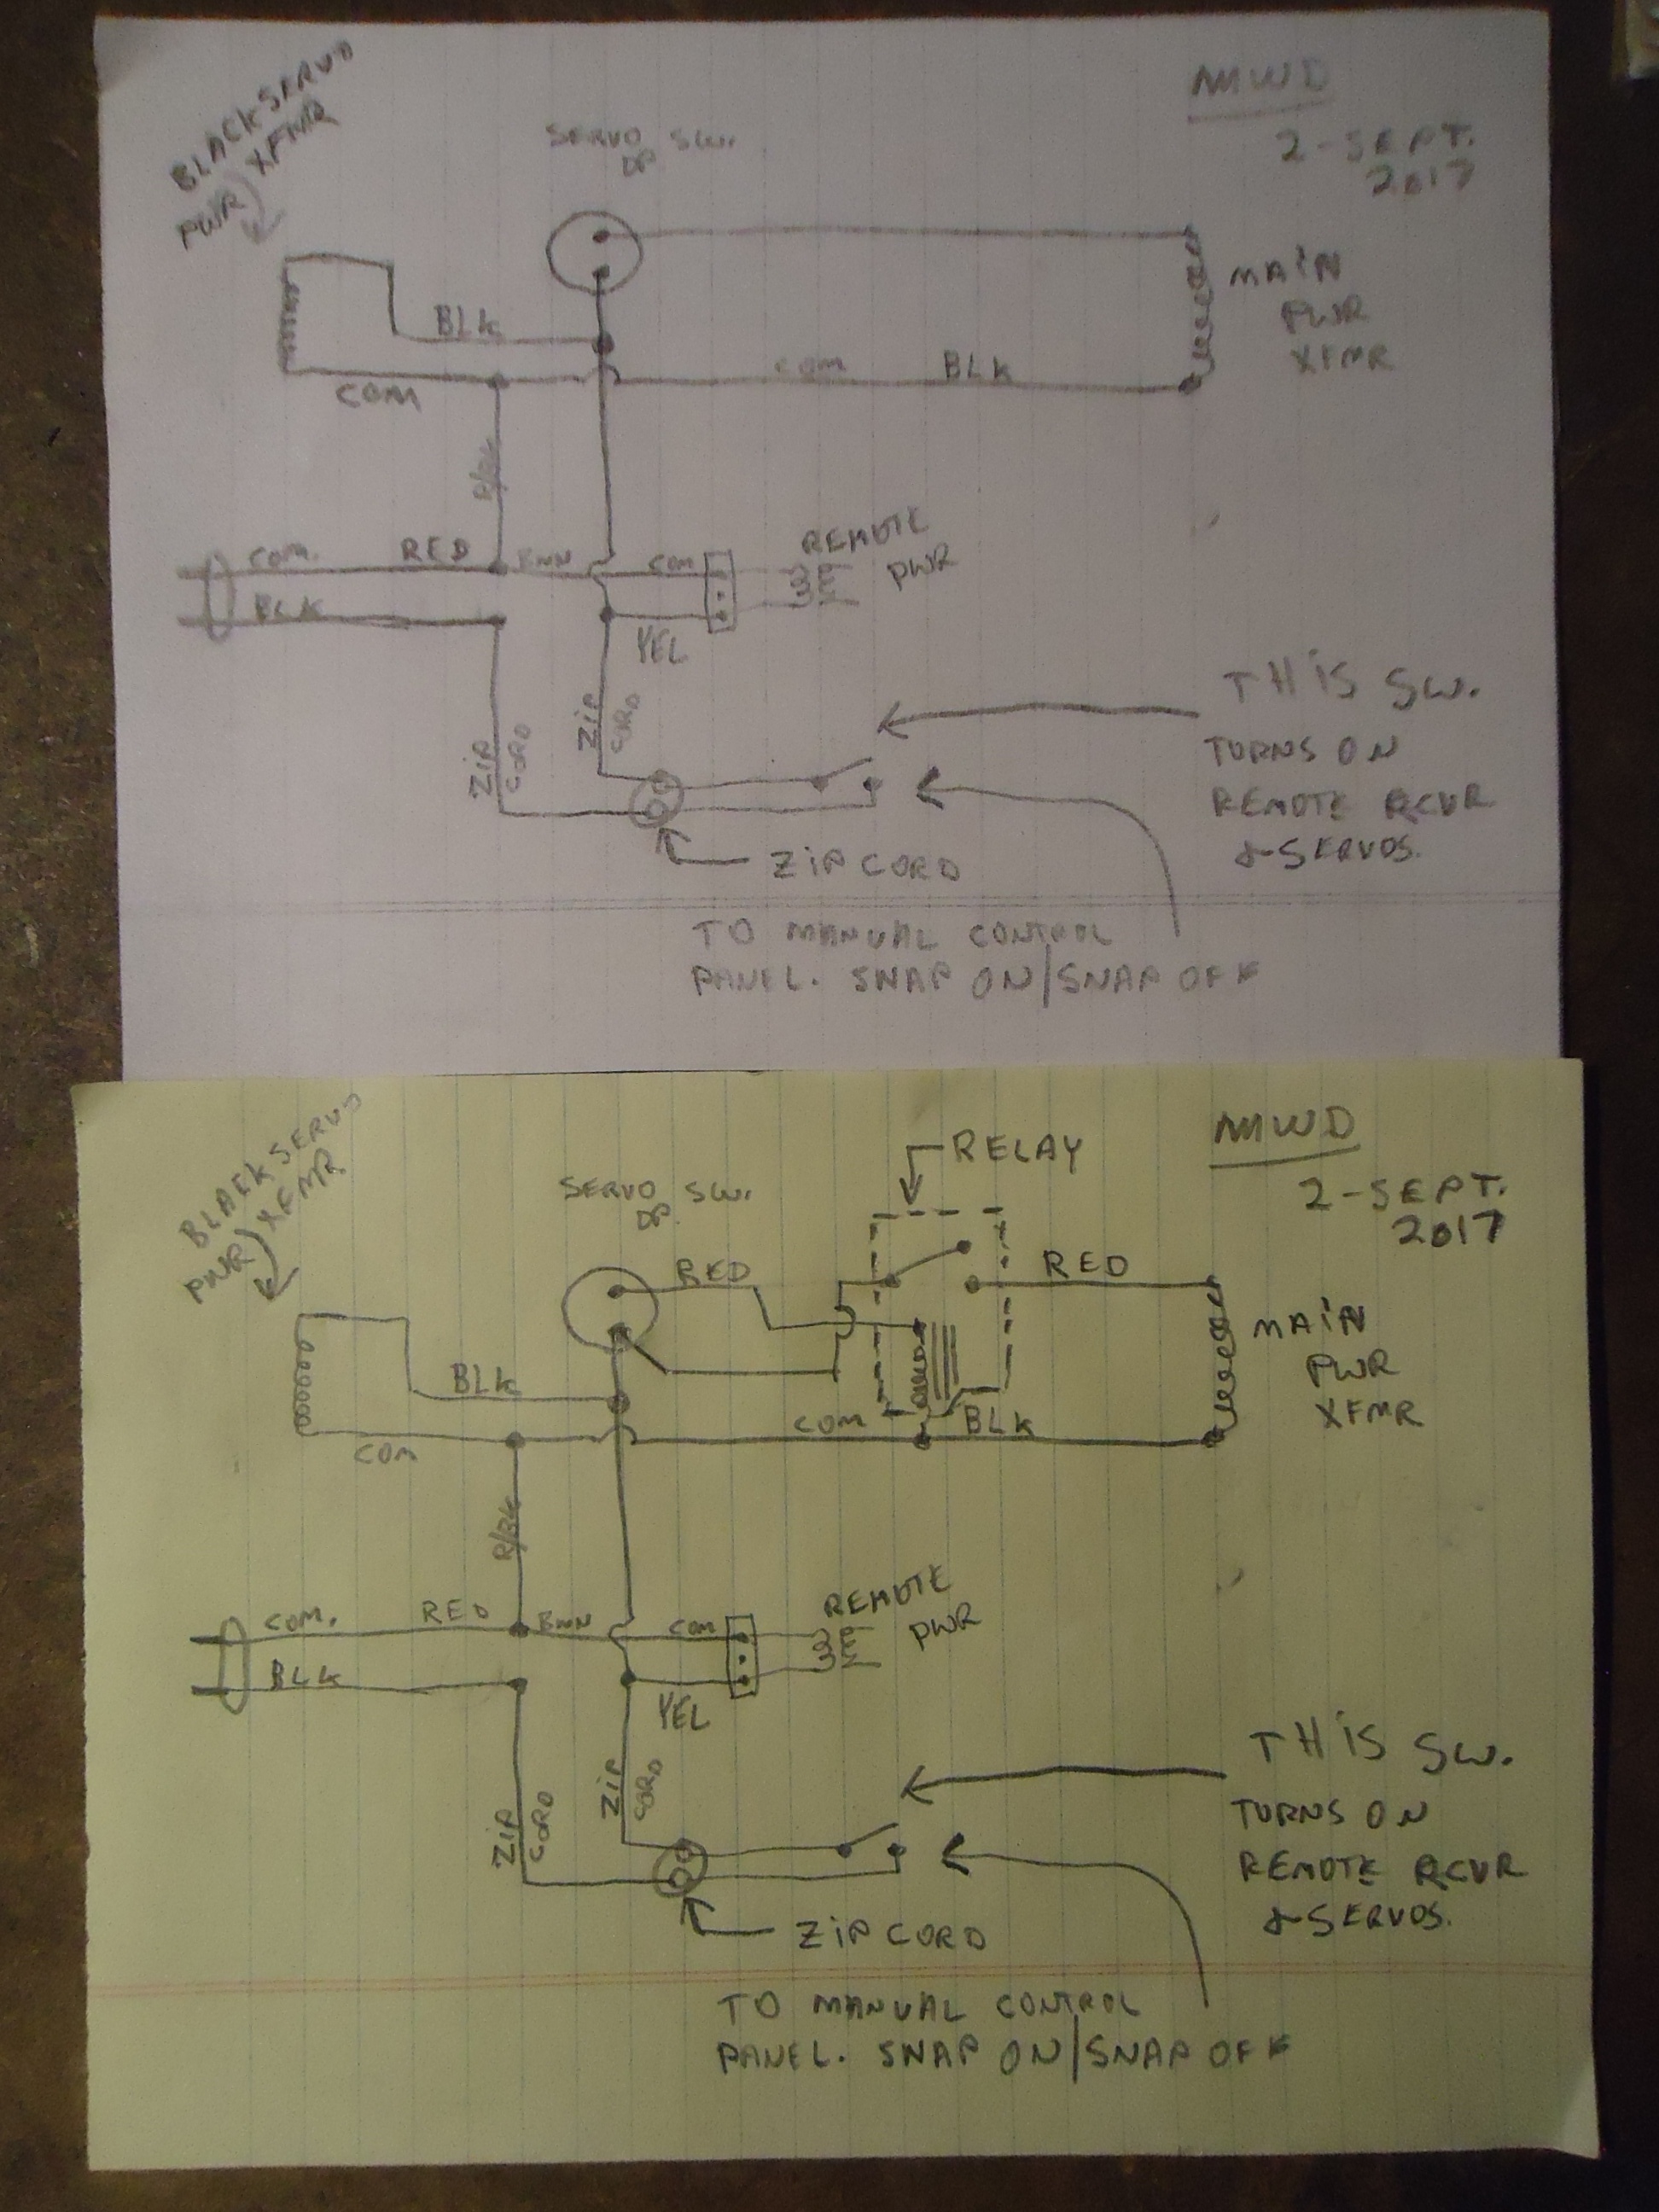 BLACK SERVO
PWR) XFMR
SERVO SW.
MWD
2-SEPT.
2017
MAIN
PWR
XFMR
BLK
COM
COM BLK
R/BK
COM. RED BRN COM
REMOTE
PWR
BLK
YEL
ZIP
CORD
ZIP
CORD
THIS SW.
TURNS ON
REMOTE RCVR
& SERVOS.
ZIP CORD
TO MANUAL CONTROL
PANEL. SNAP ON/SNAP OFF
BLACK SERVO
PWR) XFMR
SERVO SW.
RELAY
MWD
2-SEPT.
2017
RED
RED
MAIN
PWR
XFMR
BLK
COM
COM BLK
R/BK
COM. RED BRN COM
REMOTE
PWR
BLK
YEL
ZIP
CORD
ZIP
CORD
THIS SW.
TURNS ON
REMOTE RCVR
& SERVOS.
ZIP CORD
TO MANUAL CONTROL
PANEL. SNAP ON/SNAP OFF